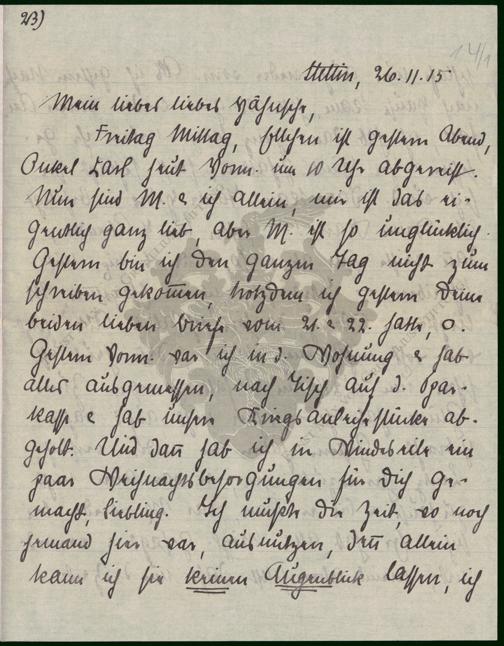 23)
14/1
Stettin, 26.11.15
Mein liebes liebes
Freitag Mittag, ist gestern Abend,
Onkel Karl heut Vorm. um 10 Uhr abgereist.
Nun sind M. & ich allein, mir ist das ei-
gentlich ganz lieb, aber M. ist so unglücklich.
Gestern bin ich den ganzen Tag nicht zum
schreiben gekom̅en, trotzdem ich gestern deine
beiden lieben Briefe vom 21. & 22. hatte,
Gestern Vorm. war ich in d. Wohnung & hab
alles ausgemessen, nach Tisch auf d. Spar-
kasse & hab unsre Kriegsanleihestücke ab-
geholt. Und dan̅ hab ich in Windeseile ein
paar Weihnachtsbesorgungen für Dich ge-
macht, Liebling. Ich mußte die Zeit, wo noch
jemand hier war, ausnutzen, den̅ allein
kann ich sie keinen Augenblick lassen, ich